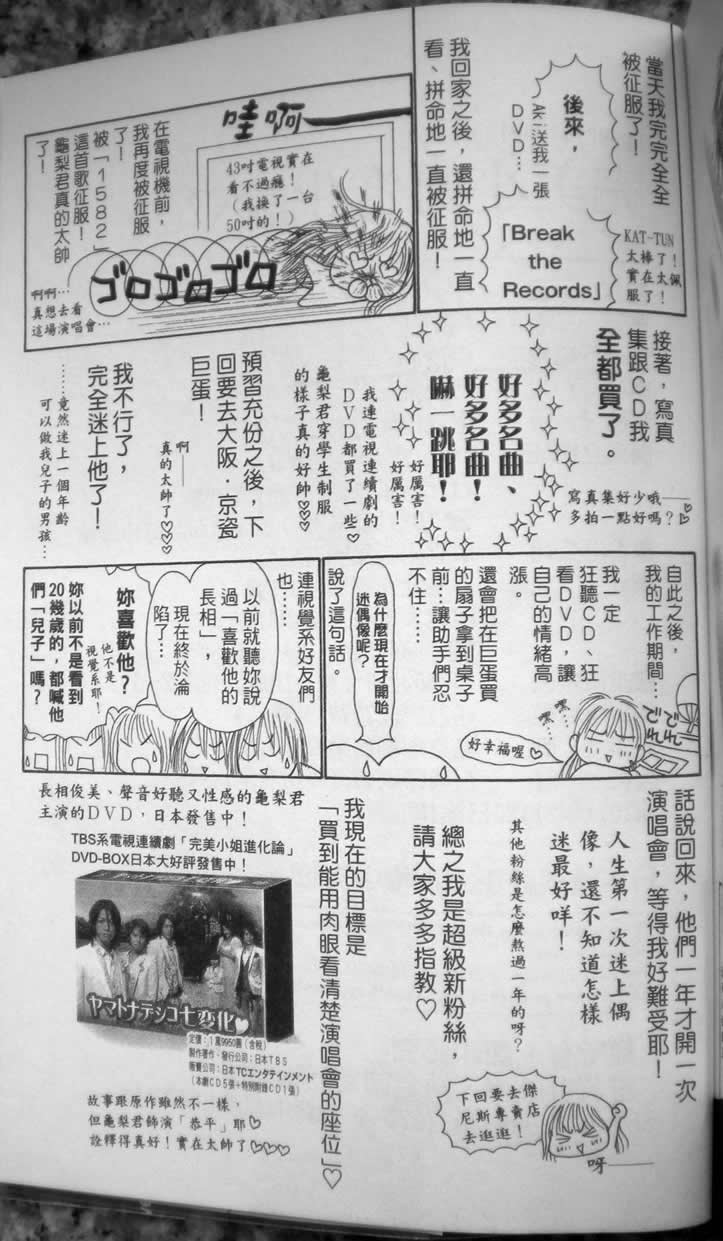 當天我完完全全
被征服了！
後來，
Aki送我一張
DVD…
「Break
the
Records」
KAT-TUN
太棒了！
實在太佩
服了！
我回家之後，還拼命地一直
看、拼命地一直被征服！
哇啊——
43吋電視實在
看不過癮！
（我換了一台
50吋的！）
在電視機前，
我再度被征服
了！
被「1582」
這首歌征服！
龜梨君真的太帥
了！
ゴロゴロゴロ
啊啊…
真想去看
這場演唱會…
接著，寫真
集跟CD我
全都買了。
寫真集好少哦——
多拍一點好嗎？♡
好多名曲、
好多名曲！
嚇一跳耶！
好厲害！
好厲害！
我連電視連續劇的
DVD都買了一些♡
龜梨君穿學生制服
的樣子真的好帥♡♡♡
預習充份之後，下
回要去大阪．京瓷
巨蛋！
啊——
真的太帥了♡♡♡
我不行了，
完全迷上他了！
……竟然迷上一個年齡
可以做我兒子的男孩…
自此之後，
我的工作期間…
我一定
狂聽CD、狂
看DVD，讓
自己的情緒高
漲。
還會把在巨蛋買
的扇子拿到桌子
前…讓助手們忍
不住……
でれ
でれ
嘿…
嘿…
好幸福喔♡
為什麼現在才開始
迷偶像呢？
說了這句話。
連視覺系好友們
也……
以前就聽妳說
過「喜歡他的
長相」，
現在終於淪
陷了…
妳喜歡他？
他不是
視覺系耶！
妳以前不是看到
20幾歲的，都喊他
們「兒子」嗎？
話說回來，他們一年才開一次
演唱會，等得我好難受耶！
人生第一次迷上偶
像，還不知道怎樣
迷最好咩！
其他粉絲是怎麼熬過一年的呀？
總之我是超級新粉絲，
請大家多多指教♡
下回要去傑
尼斯專賣店
去逛逛！
呀——
我現在的目標是
「買到能用肉眼看清楚演唱會的座位」♡
長相俊美、聲音好聽又性感的龜梨君
主演的DVD，日本發售中！
TBS系電視連續劇「完美小姐進化論」
DVD-BOX日本大好評發售中！
ヤマトナデシコ七変化
定價：1萬9950圓（含稅）
製作著作‧發行公司：日本TBS
販賣公司：日本TCエンタテインメント
（本劇CD5張+特別附錄CD1張）
故事跟原作雖然不一樣，
但龜梨君飾演「恭平」耶♡
詮釋得真好！實在太帥了♡♡♡